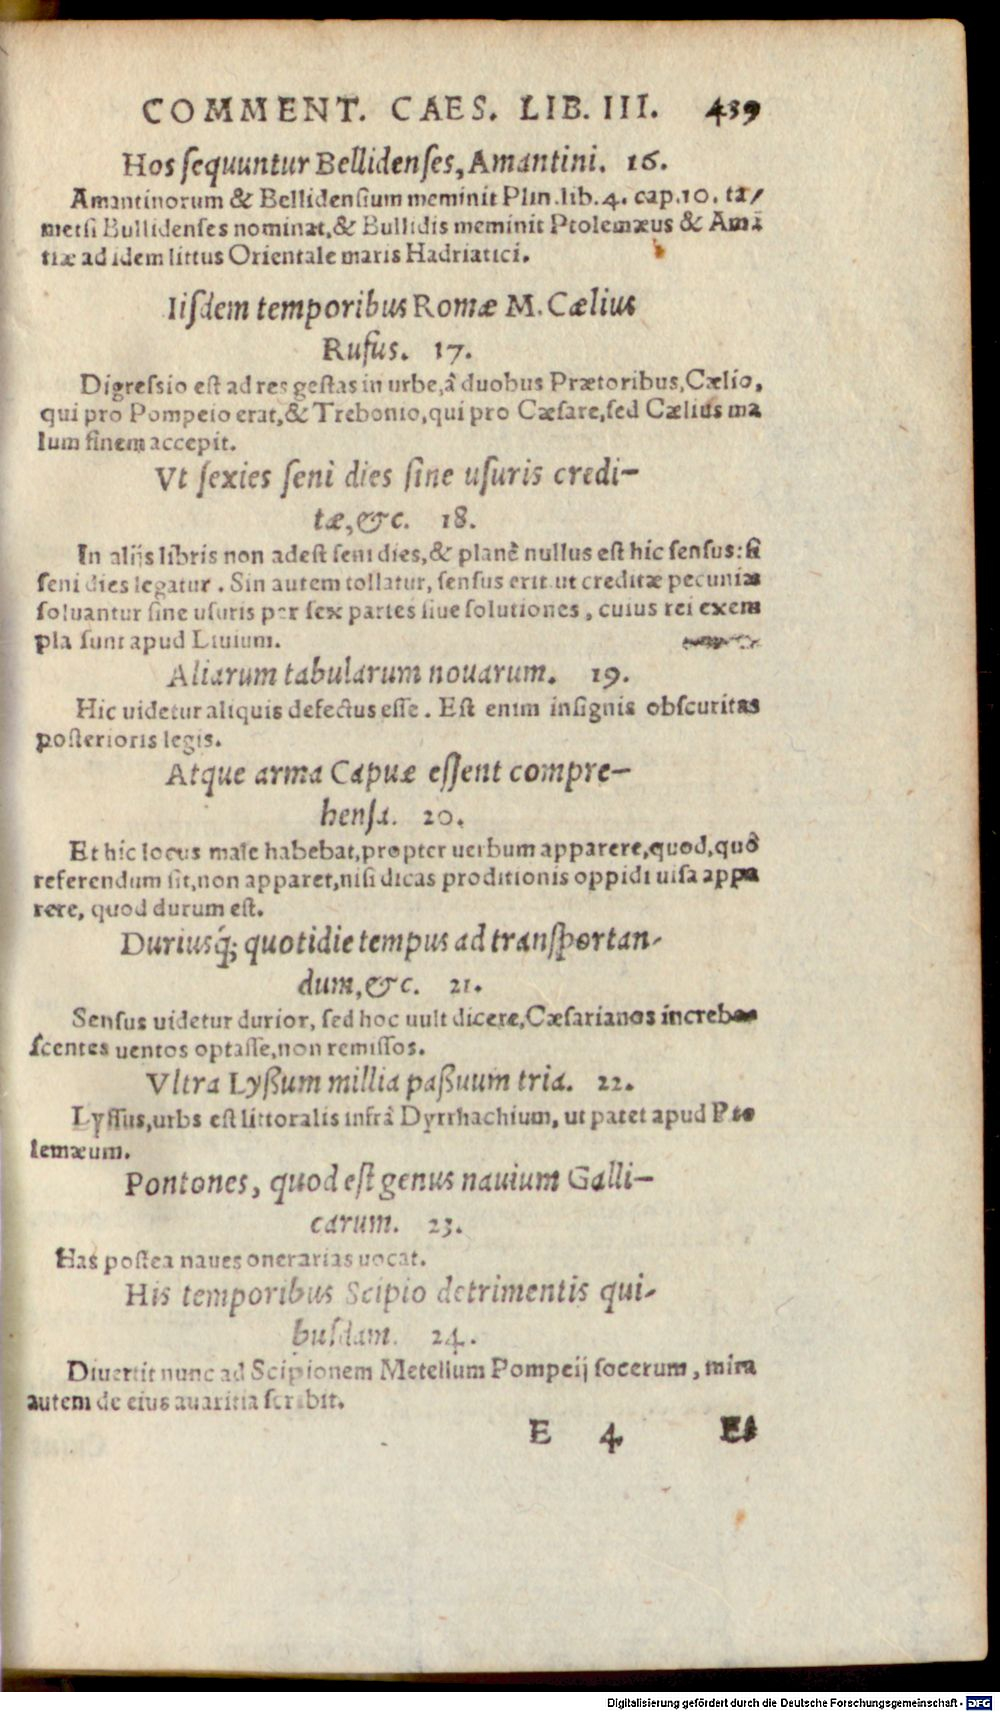 COMMENT. CAES. LIB. III. 439
Hos ſequuntur Bellidenſes, Amantini. 16.
Amantinorum & Bellidenſium meminit Plin. lib. 4. cap. 10. ta/
metſi Bullidenſes nominat, & Bullidis meminit Ptolemæus & Amā
tiæ ad idem littus Orientale maris Hadriatici.
Iiſdem temporibus Romæ M. Cælius
Rufus. 17.
Digreſsio eſt ad res geſtas in urbe, â duobus Prætoribus, Cælio,
qui pro Pompeio erat, & Trebonio, qui pro Cæſare, ſed Cælius ma
lum finem accepit.
Vt ſexies ſeni dies ſine uſuris credi-
tæ, &c. 18.
In alijs libris non adeſt ſeni dies, & planè nullus eſt hic ſenſus: ſi
ſeni dies legatur. Sin autem tollatur, ſenſus erit ut creditæ pecuniæ
ſoluantur ſine uſuris per ſex partes ſiue ſolutiones, cuius rei exem
pla ſunt apud Liuium.
Aliarum tabularum nouarum. 19.
Hic uidetur aliquis defectus eſſe. Eſt enim inſignis obſcuritas
poſterioris legis.
Atque arma Capuæ eſſent compre-
henſa. 20.
Et hic locus male habebat, propter uerbum apparere, quod, quò
referendum ſit, non apparet, niſi dicas proditionis oppidi uiſa appa
rere, quod durum eſt.
Duriusq́; quotidie tempus ad tranſportan-
dum, &c. 21.
Senſus uidetur durior, ſed hoc uult dicere, Cæſarianos increbe-
ſcentes uentos optaſſe, non remiſſos.
Vltra Lyßum millia paßuum tria. 22.
Lyſſus, urbs eſt littoralis infrâ Dyrrhachium, ut patet apud Pto
lemæum.
Pontones, quod eſt genus nauium Galli-
carum. 23.
Has poſtea naues onerarias uocat.
His temporibus Scipio detrimentis qui-
buſdam. 24.
Diuertit nunc ad Scipionem Metellum Pompeij ſocerum, mira
autem de eius auaritia ſcribit.
E 4 Et
Digitalisierung gefördert durch die Deutsche Forschungsgemeinschaft - DFG